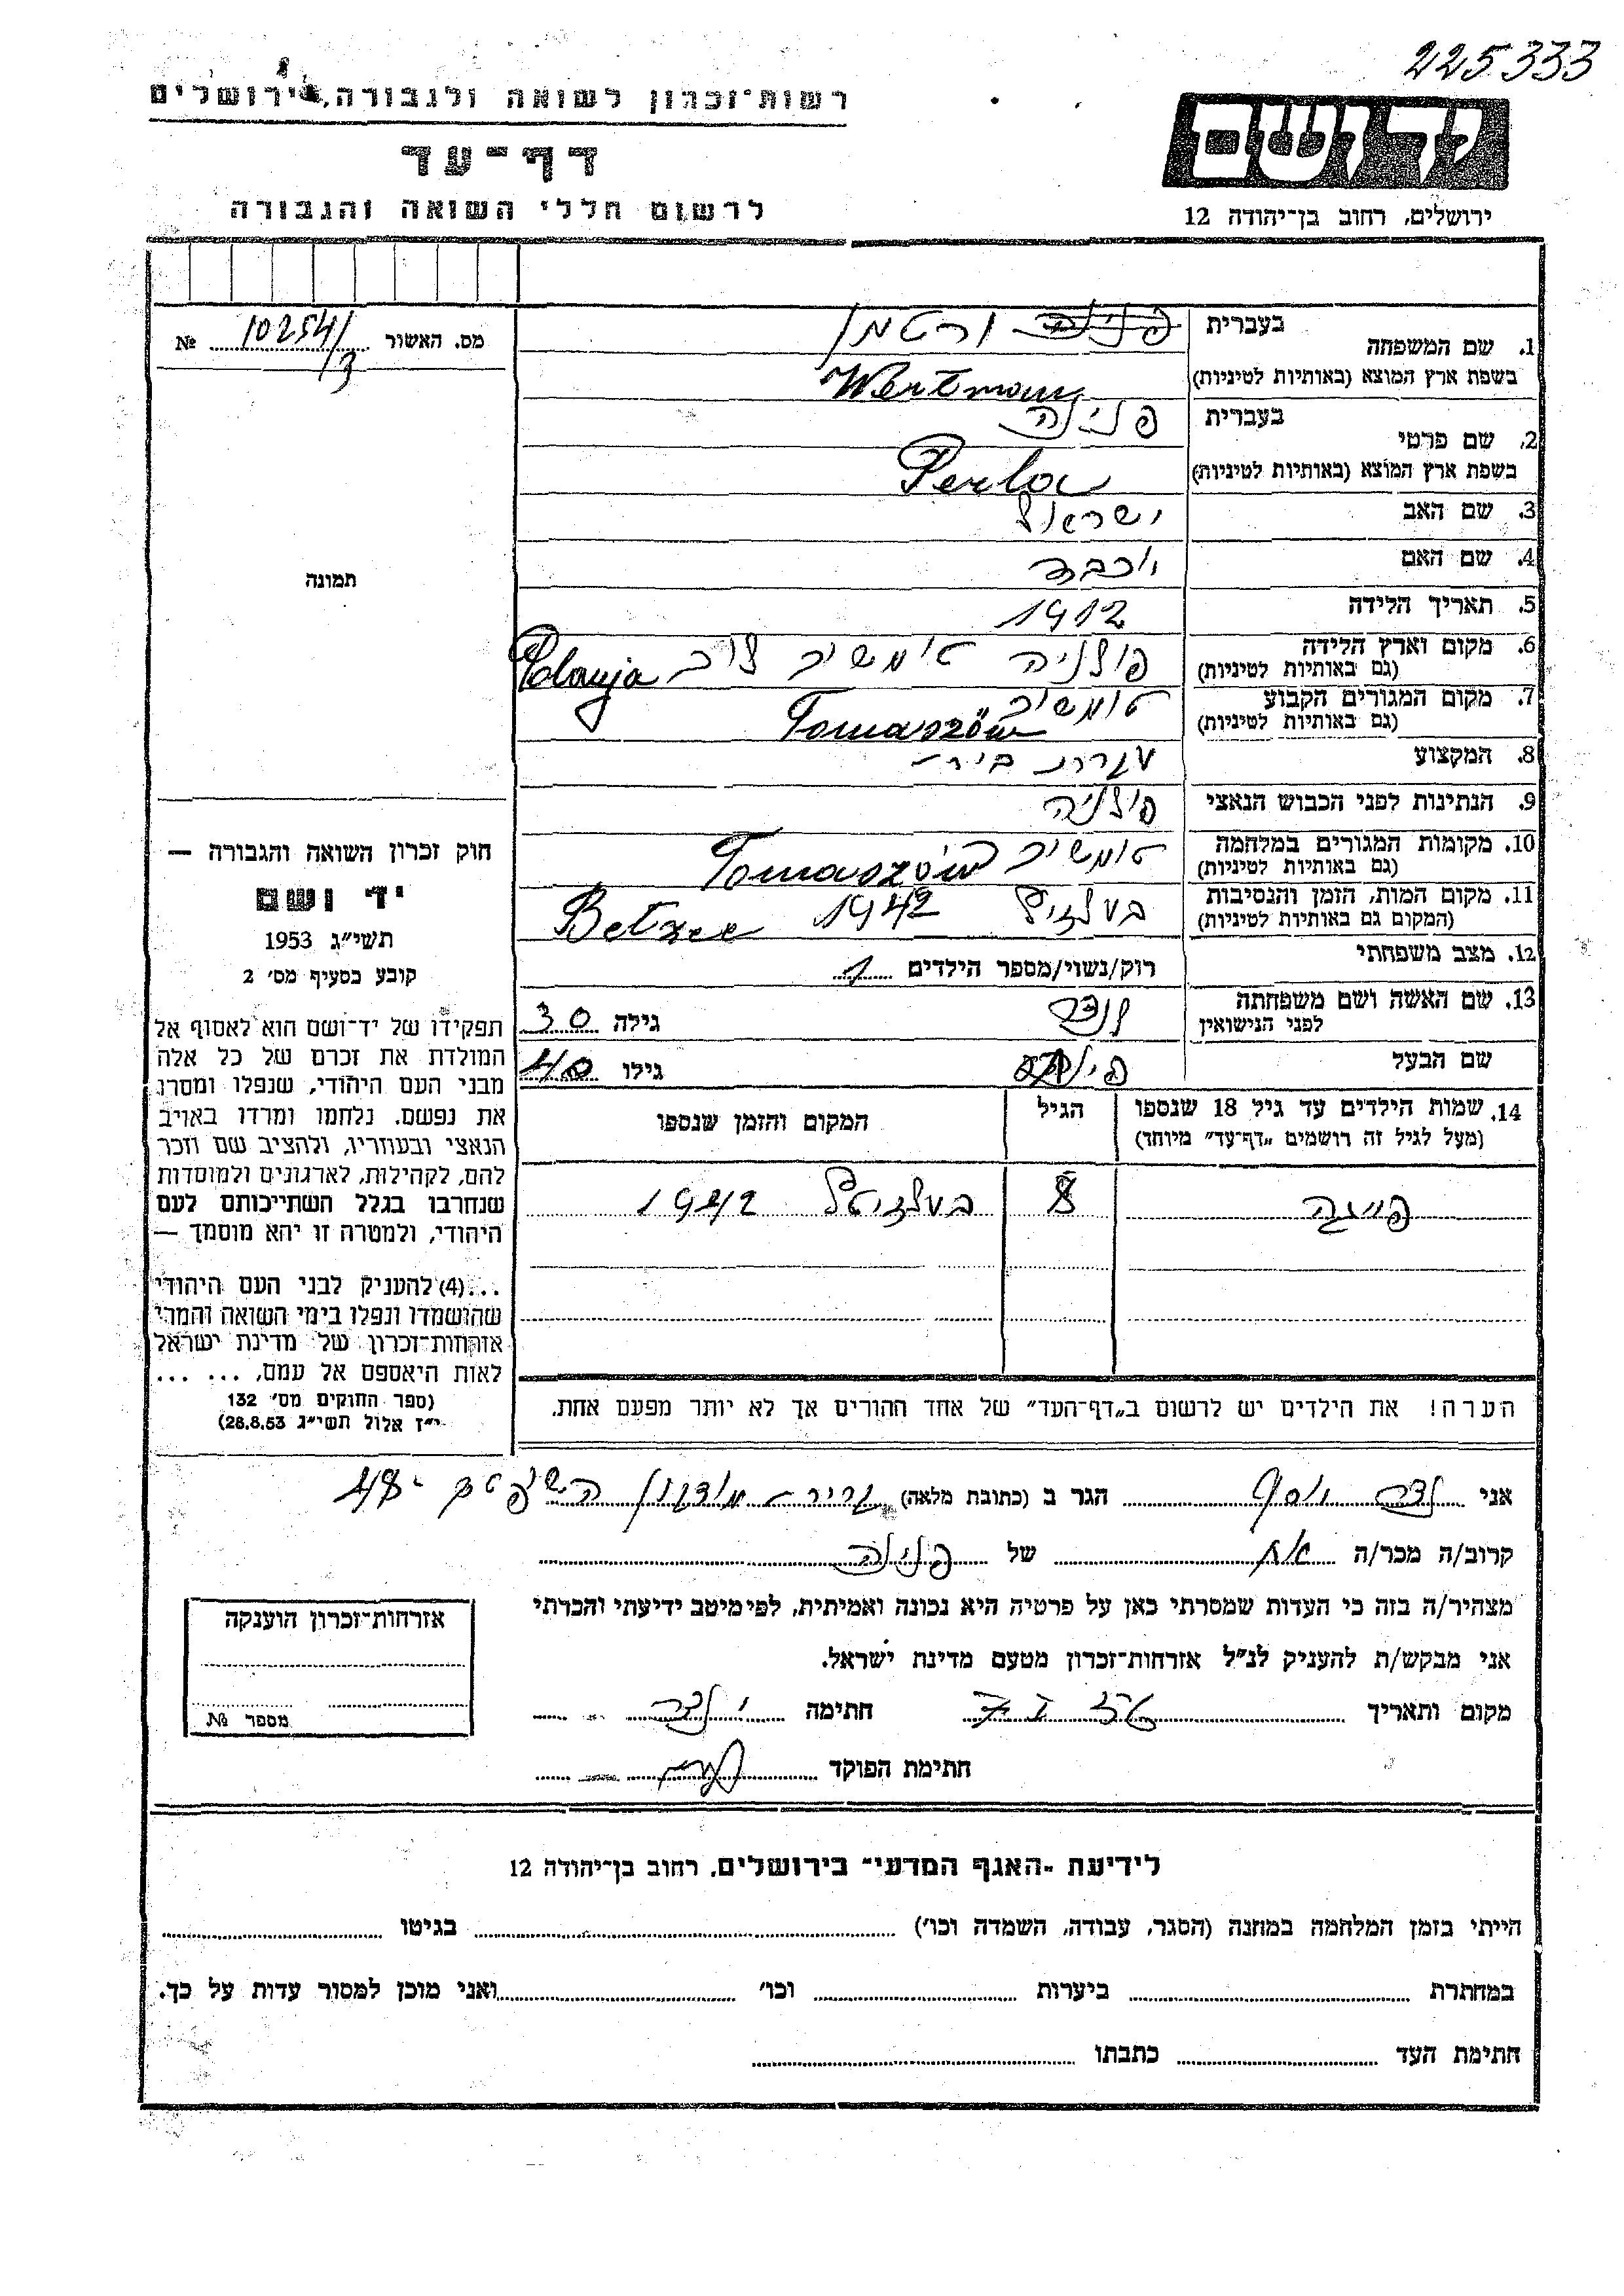 225333
רשות־זכרון לשואה ולגבורה, ירושלים
דף־עד
לרשום חללי השואה והגבורה
ירושלים, רחוב בן־יהודה 12
מס. האשור 10254/3 №
1. שם המשפחה בעברית ורטמן
בשפת ארץ המוצא (באותיות לטיניות) Wertman
2. שם פרטי בעברית פנינה
בשפת ארץ המוצא (באותיות לטיניות) Perla
3. שם האב ישראל
4. שם האם יוכבד
5. תאריך הלידה 1912
6. מקום וארץ הלידה (גם באותיות לטיניות) פולניה טומשוב לוב Polanja
7. מקום המגורים הקבוע (גם באותיות לטיניות) טומשוב Tomaszów
8. המקצוע עקרת בית
9. הנתינות לפני הכבוש הנאצי פולניה
10. מקומות המגורים במלחמה (גם באותיות לטיניות) טומשוב Tomaszów
11. מקום המות, הזמן והנסיבות (המקום גם באותיות לטיניות) 1942 Betzec
12. מצב משפחתי רוק/נשוי/מספר הילדים 1
13. שם האשה ושם משפחתה לפני הנישואין לנדר גילה 30
שם הבעל גילו 40
תמונה
חוק זכרון השואה והגבורה —
יד ושם
תשי״ג 1953
קובע בסעיף מס׳ 2
תפקידו של יד־ושם הוא לאסוף אל
המולדת את זכרם של כל אלה
מבני העם היהודי, שנפלו ומסרו
את נפשם. נלחמו ומרדו באויב
הנאצי ובעוזריו, ולהציב שם וזכר
להם, לקהילות, לארגונים ולמוסדות
שנחרבו בגלל השתייכותם לעם
היהודי, ולמטרה זו יהא מוסמך —
...(4) להעניק לבני העם היהודי
שהושמדו ונפלו בימי השואה והמרי
אזרחות־זכרון של מדינת ישראל
לאות היאספם אל עמם, ... ...
(ספר החוקים מס׳ 132
י״ז אלול תשי״ג 28.8.53)
14. שמות הילדים עד גיל 18 שנספו
(מעל לגיל זה רושמים „דף־עד״ מיוחד)
הגיל
המקום והזמן שנספו
פייגה 8 1942
הערה! את הילדים יש לרשום ב„דף־העד״ של אחד ההורים אך לא יותר מפעם אחת.
אני יוסף הגר ב (כתובת מלאה) קרית
קרוב/ה מכר/ה אח של פנינה
מצהיר/ה בזה כי העדות שמסרתי כאן על פרטיה היא נכונה ואמיתית, לפי מיטב ידיעתי והכרתי
אני מבקש/ת להעניק לנ״ל אזרחות־זכרון מטעם מדינת ישראל.
מקום ותאריך חתימה
חתימת הפוקד
אזרחות־זכרון הוענקה
מספר №
לידיעת ״האגף המדעי״ בירושלים, רחוב בן־יהודה 12
הייתי בזמן המלחמה במחנה (הסגר, עבודה, השמדה וכו׳) בגיטו
במחתרת ביערות וכו׳ ואני מוכן למסור עדות על כך.
חתימת העד כתבתו